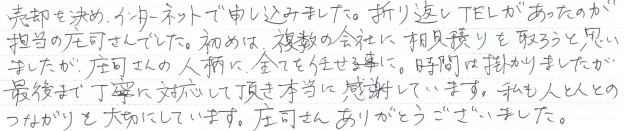 売却を決め、インターネットで申し込みました。折り返しTELがあったのが
担当の庄司さんでした。初めは、複数の会社に相見積りを取ろうと思い
ましたが、庄司さんの人柄に全てを任せる事に。時間は掛かりましたが
最後まで丁寧に対応して頂き本当に感謝しています。私も人と人との
つながりを大切にしています。庄司さんありがとうございました。